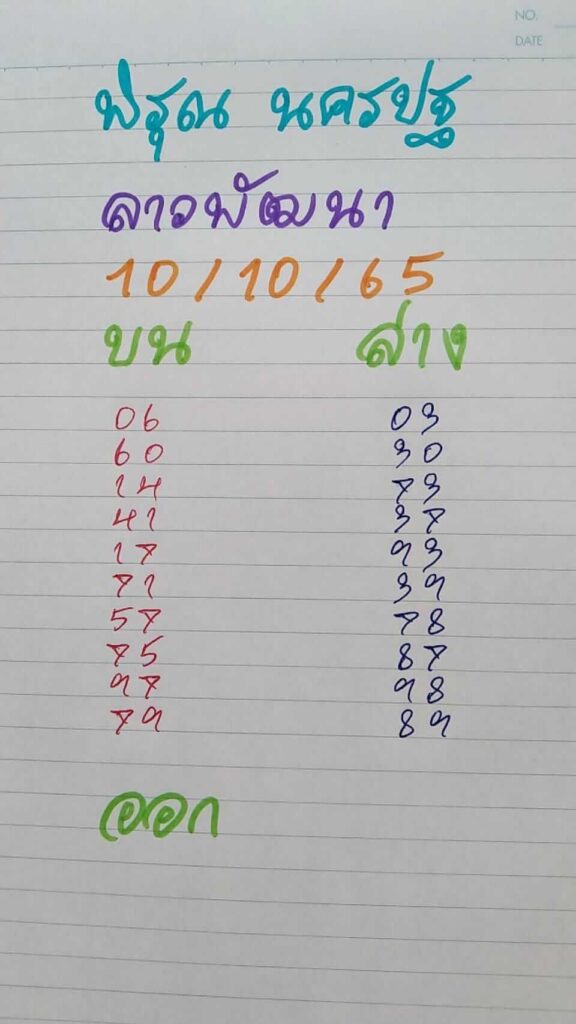 NO.
DATE
พิรุณ นครปฐ
ลาวพัฒนา
10/10/65
บน ล่าง
06 03
60 30
14 73
41 37
17 93
71 39
57 78
75 87
97 98
79 89
ออก